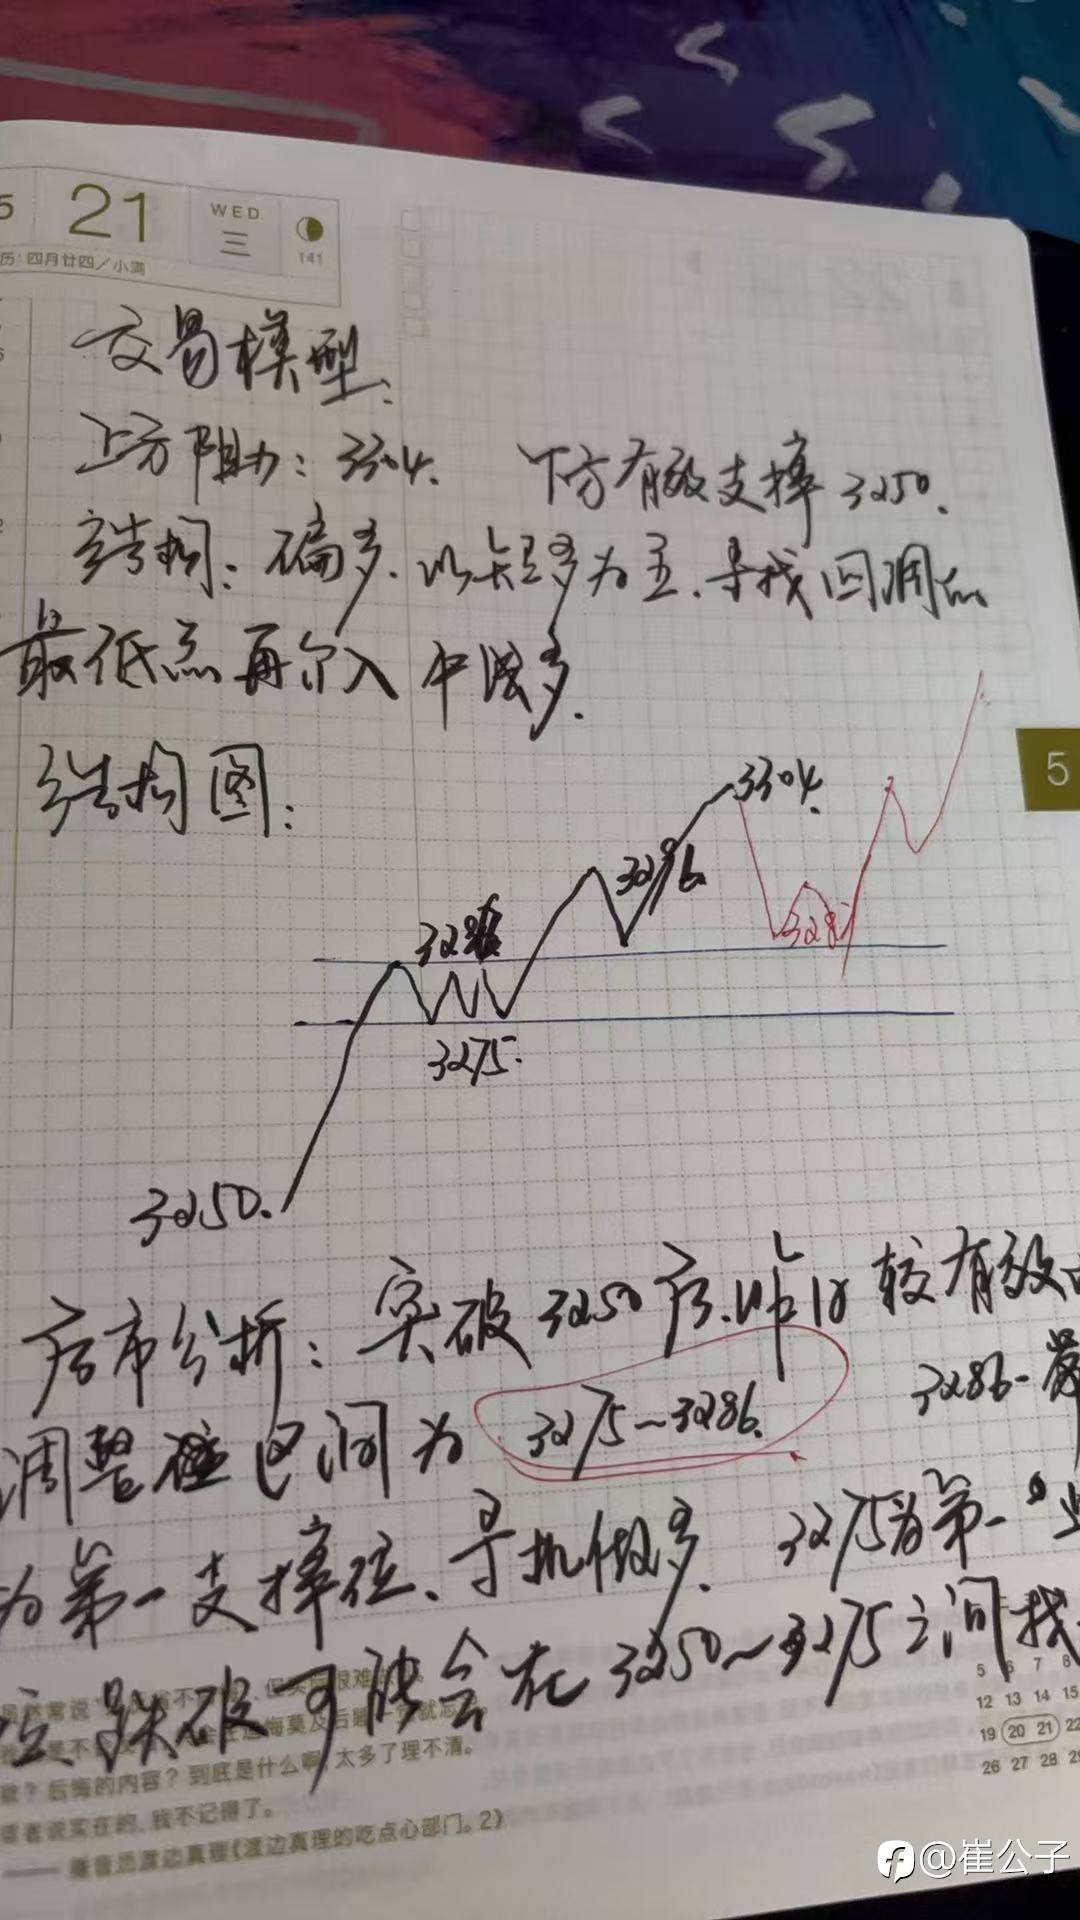 5 21 WED 三 141
历：四月廿四／小满
交易模型：
上方阻力：3304. 下方有效支撑 3250.
结构：偏多．以短多为主．寻找回调的
最低点再介入中线多．
结构图：
5
3304.
3296
328
3275.
3250.
后市分析：突破3250后．昨日较有效的
调整 区间为 3275～3286. 3286-
为第一支撑位、寻机做多. 3275为第一
位 跌破可能会在3250～3275之间找
太多了理不清。
歉？后悔的内容？到底是什么啊
实在的，我不记得了。
渡边真理《渡边真理的吃点心部门。2》
5 6 7 8
12 13 14 15
19 20 21 22
26 27 28 29
@崔公子